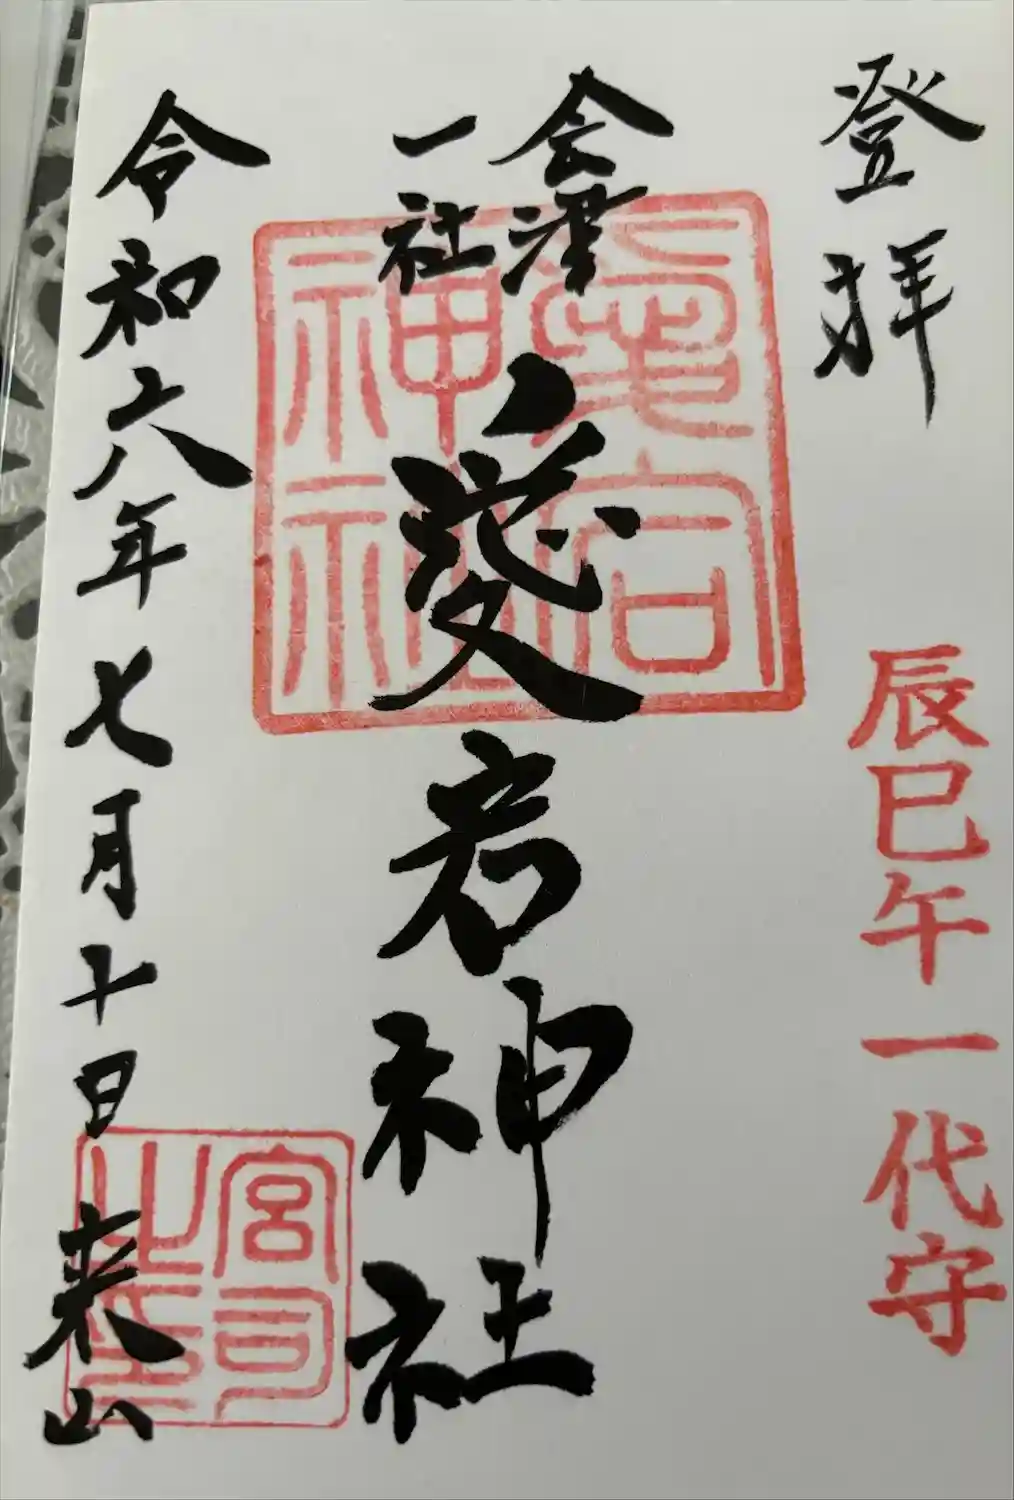 登拝
辰巳午一代守
会津
一社
愛宕神社
愛宕
神社
令和六年七月十日
来山
宮司
之印